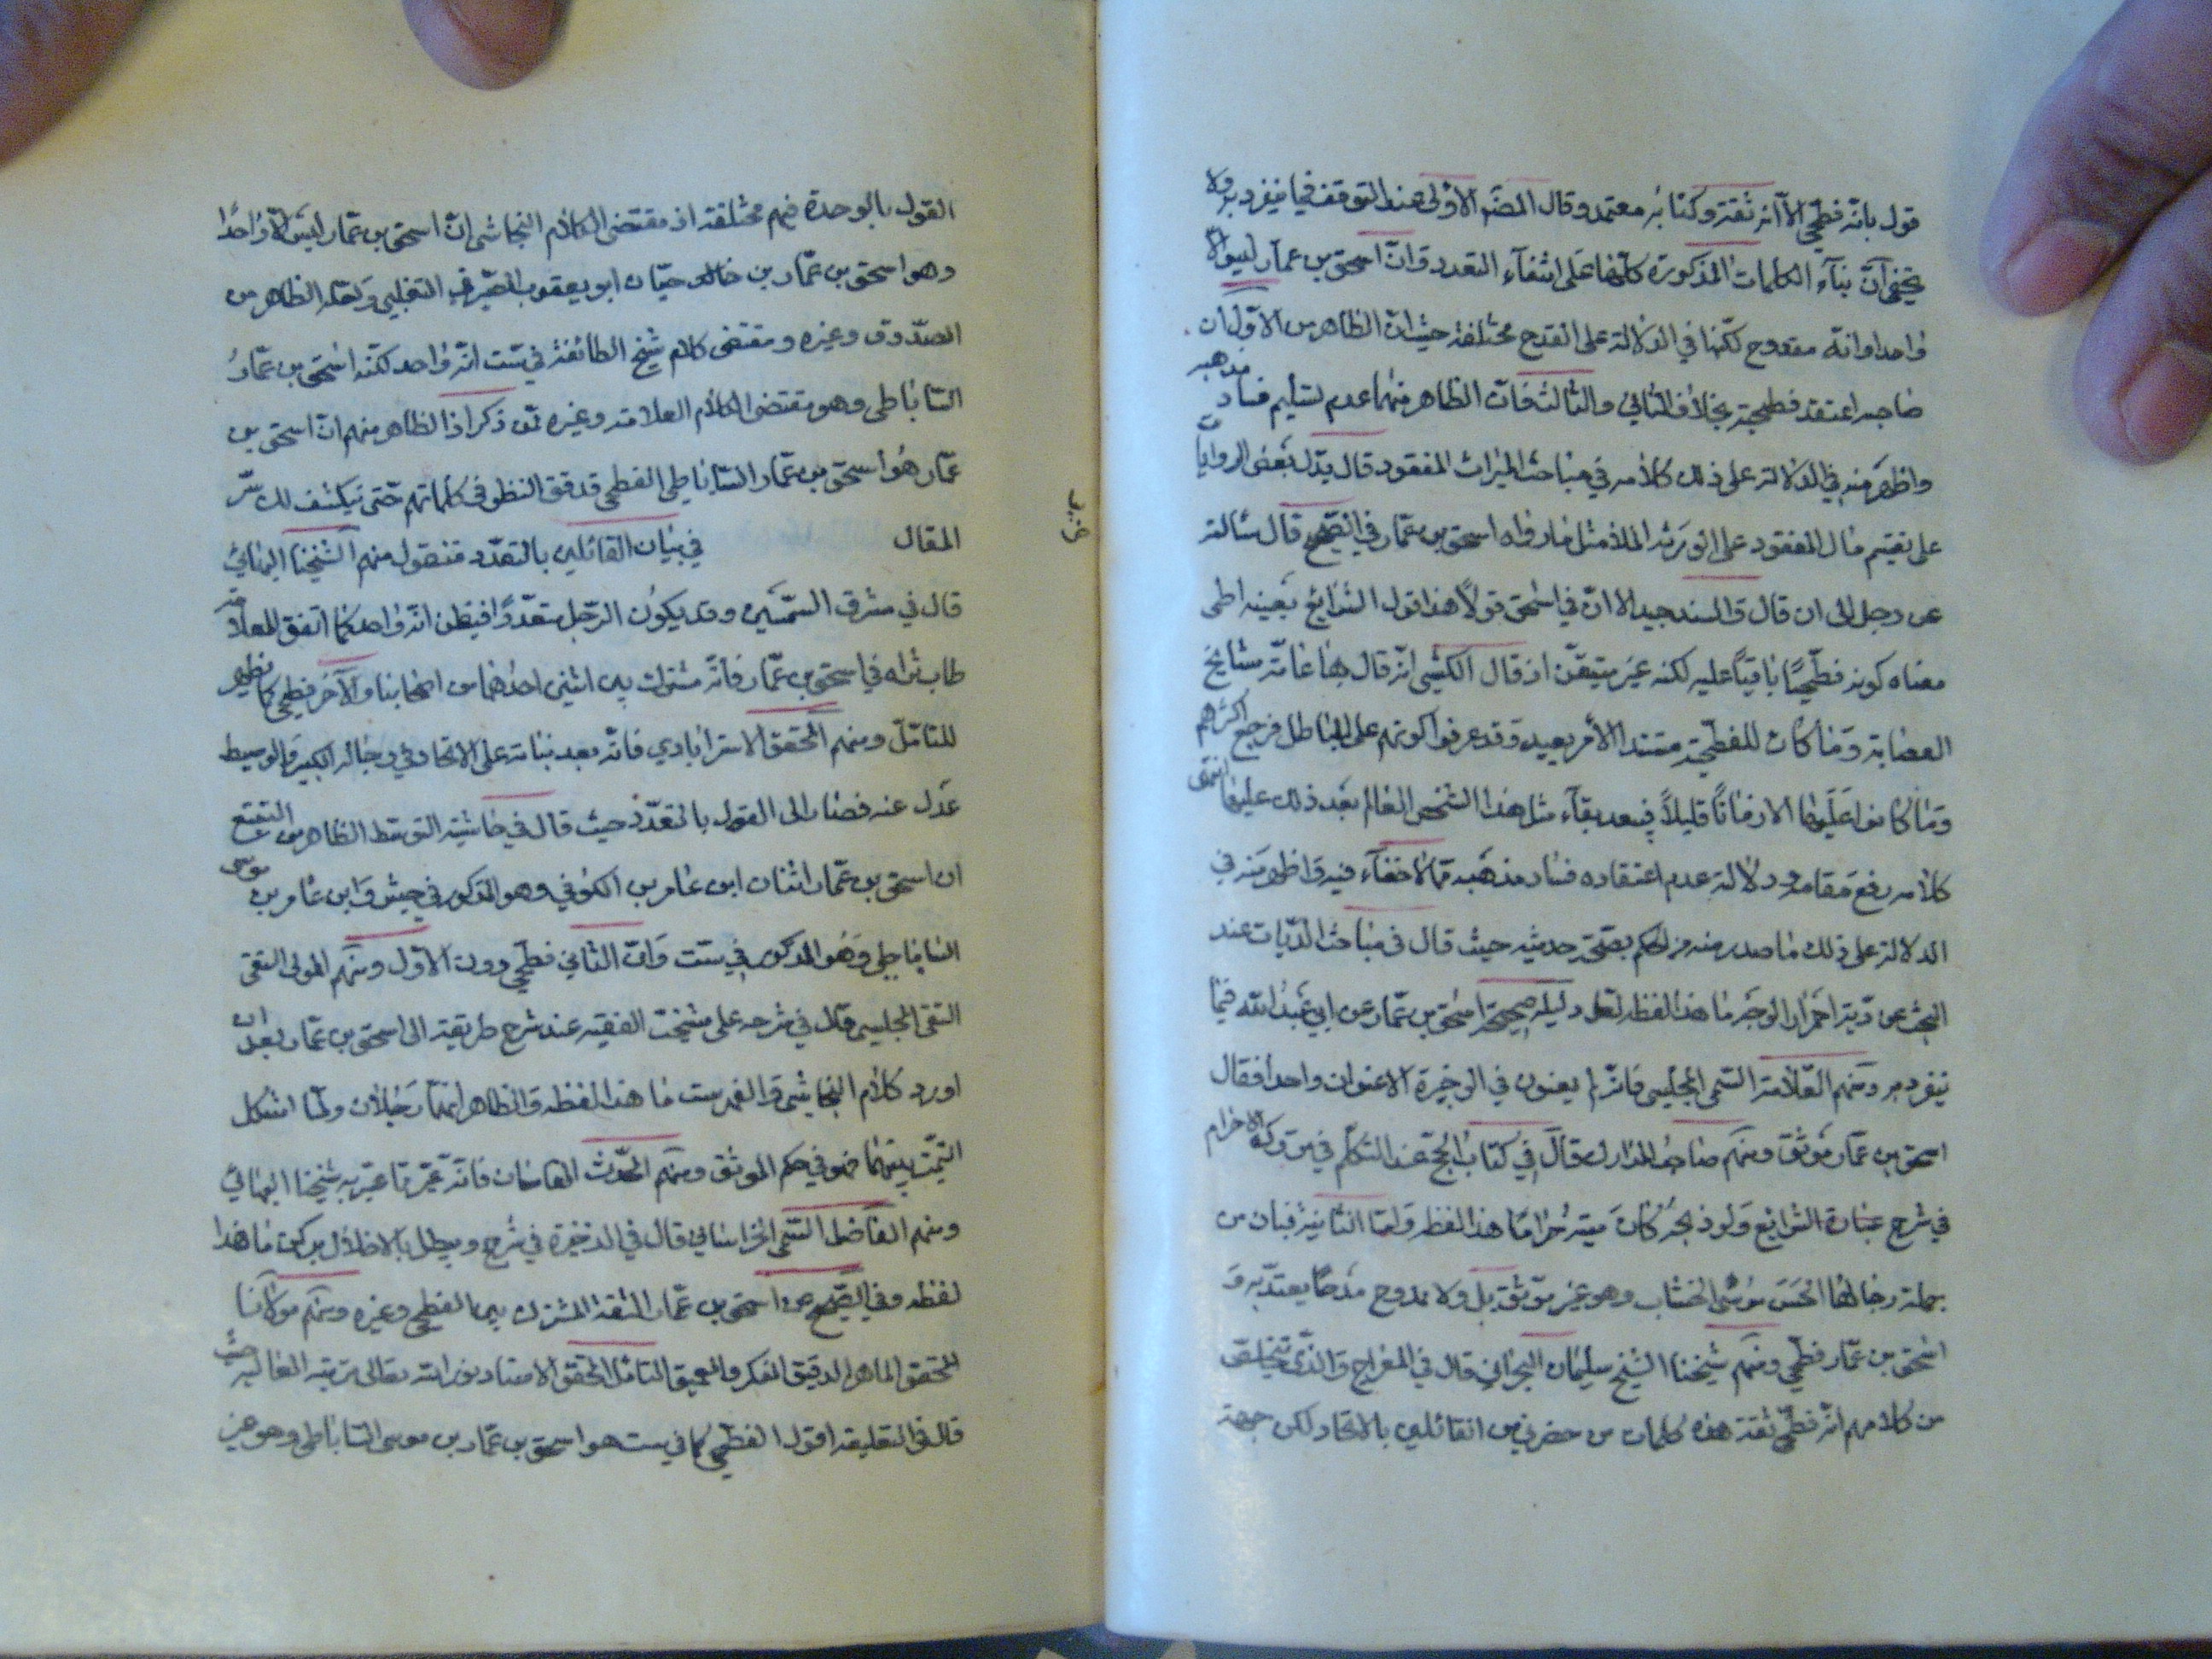 قول بانه فطحي الا انه ثقة وكتابه معتمد وقال المصنف الاولى عندي التوقف فيما ينفرد به ولا
يخفى ان بناء الكلمات المذكورة كلها على انتفاء التعدد وان اسحق بن عمار ليس الا
واحدا وانه مقدوح لكنها في الدلالة على القدح مختلفة حيث ان الظاهر من الاول ان
صاحبه اعتقد فطحيته بخلاف الثاني والثالث فان الظاهر منهما عدم تسليم فساد مذهبه
واظهر منه في الدلالة على ذلك كلامه في مباحث الميراث المفقود قال يدل بعض الروايات
على تقسيم مال المفقود على الورثة الملاء مثل ما رواه اسحق بن عمار في الصحيح قال سألته
عن رجل الى ان قال والسند جيد الا ان في اسحق قولا هذا قول الشرائع بعينه
معناه كونه فطحيا باقيا عليه لكنه غير متيقن اذ قال الكشي انه قال بها عامة مشايخ
العصابة وما كان للفطحية مستند الا امر بعيد وقد عرفوا كونهم على الباطل فرجع اكثرهم
وما كانوا عليها الا زمانا قليلا فبعد بقاء مثل هذا الشخص العالم بعد ذلك عليها انتهى
كلامه رفع مقامه ودلالة عدم اعتقاده فساد مذهبه مما لا خفاء فيه واظهر منه في
الدلالة على ذلك ما صدر منه من الحكم بصحة حديثه حيث قال في مباحث الديات عند
البحث عن دية احمرار الوجه ما هذا لفظه لعل دليله صحيحة اسحق بن عمار عن ابي عبد الله فيما
ينفرد به ومنهم العلامة السمي المجلسي فانه لم يعنون في الوجيزة الا عنوان واحدا فقال
اسحق بن عمار موثق ومنهم صاحب المدارك قال في كتاب الحج عند التكلم في تروك الاحرام
في شرح عبارة الشرائع ولو ذبحه كان ميتة حراما هذا لفظه واما الثانية فبان من
جملة رجالها الحسن بن موسى الخشاب وهو غير موثق بل ولا ممدوح مدحا يعتد به و
اسحق بن عمار فطحي ومنهم شيخنا الشيخ سليمان البحراني قال في المعراج والذي
من كلامهم انه فطحي ثقة هذه كلمات من حضرني من القائلين بالاتحاد لكن جهة
القول بالوحدة فيهم مختلفة اذ مقتضى الكلام النجاشي ان اسحق بن عمار ليس الا واحدا
وهو اسحق بن عمار بن حيان ابو يعقوب الصيرفي التغلبي ولعله الظاهر من
الصدوق وغيره ومقتضى كلام شيخ الطائفة في ست انه واحد لكنه اسحق بن عمار
الساباطي وهو مقتضى الكلام العلامة وغيره ممن ذكر اذ الظاهر منهم ان اسحق بن
عمار هو اسحق بن عمار الساباطي الفطحي فدقق النظر في كلماتهم حتى ينكشف لك سر
المقال في بيان القائلين بالتعدد فنقول منهم الشيخنا البهائي
قال في مشرق الشمسين وقد يكون الرجل متعددا فيظن انه واحد كما اتفق للعلامة
طاب ثراه في اسحق بن عمار فانه مشترك بين اثنين احدهما من اصحابنا والآخر فطحي كما يظهر
للتأمل ومنهم المحقق الاسترابادي فانه بعد بنائه على الاتحاد في رجاله الكبير والوسيط
عدل عنه فصار الى القول بالتعدد حيث قال في حاشيته التوسط الظاهر من التتبع
ان اسحق بن عمار اثنان ابن عمار بن الكوفي وهو المذكور في جش وابن عمار بن موسى
الساباطي وهو المذكور في ست وان الثاني فطحي دون الاول ومنهم المولى التقي
النقي المجلسي قال في شرحه على مشيخة الفقيه عند شرح طريقته الى اسحق بن عمار بعد ان
اورد كلام النجاشي والفهرست ما هذا لفظه والظاهر انهما رجلان ولما اشكل
التميز بينهما فهو في حكم الموثق ومنهم المحدث القاساني فانه عبر بما عبر به شيخنا البهائي
ومنهم الفاضل السمي الخراساني قال في الذخيرة في شرح ويبطل بالاخلال بركن ما هذا
لفظه وفي الصحيح عن اسحق بن عمار الثقة المشترك بين الفطحي وغيره ومنهم مولانا
المحقق الماهر الدقيق الفكر والعميق التأمل المحقق الاستاد نور الله تعالى تربته الغالية حيث
قال في التعليقة اقول الفطحي كما في ست هو اسحق بن عمار بن موسى الساباطي وهو غير